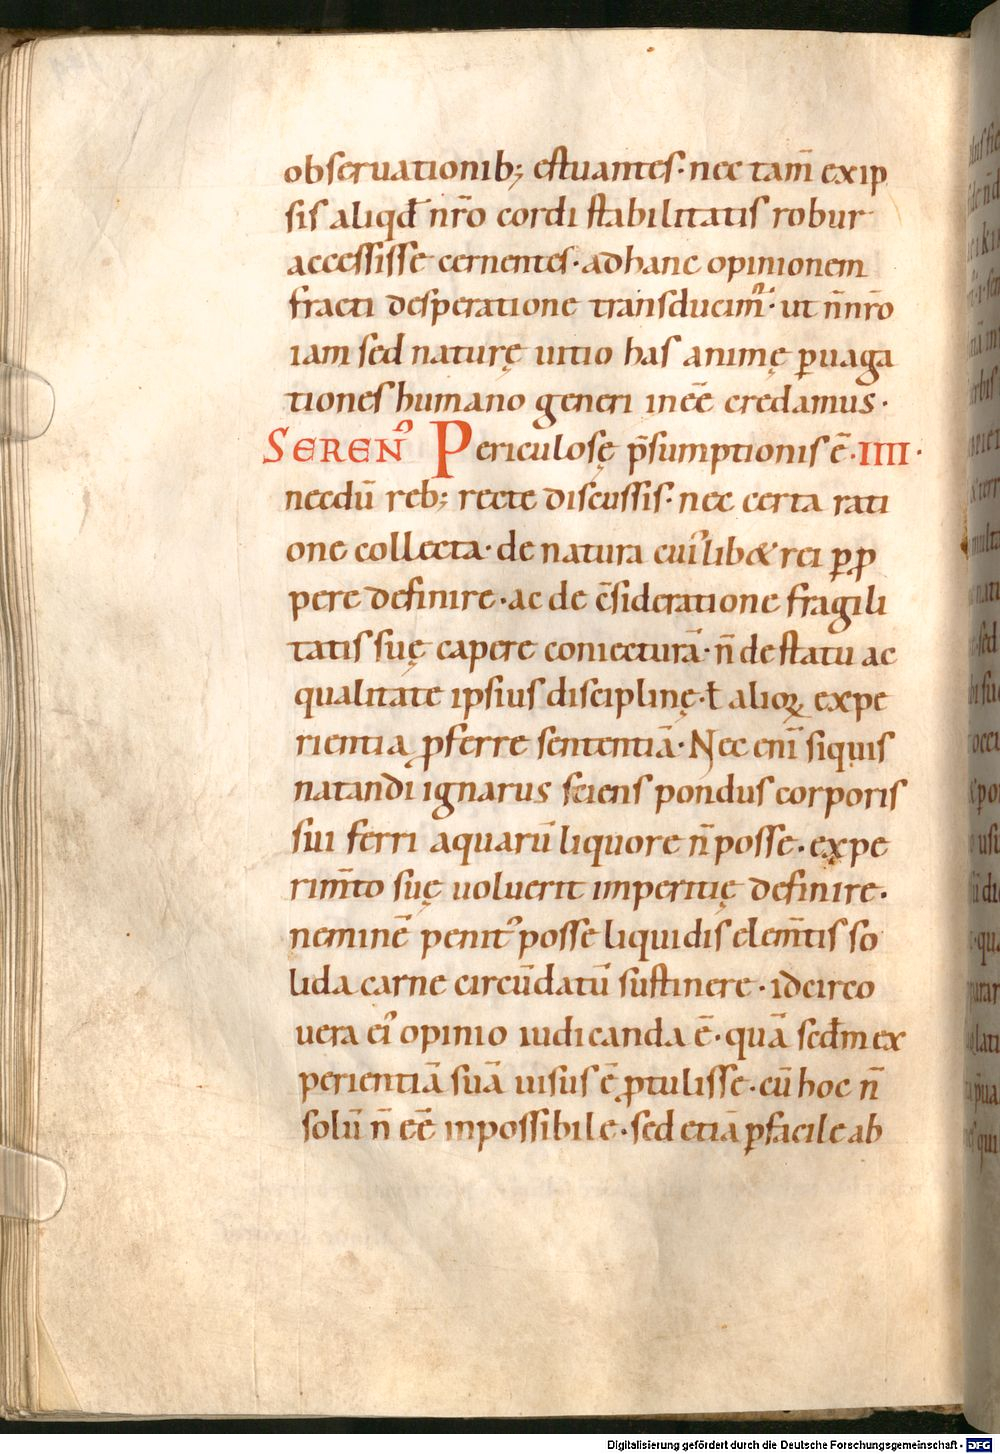 obseruationib; estuantes· nec tam̄ ex ip
sis aliqđ nr̄o cordi stabilitatis robur
accessisse cernentes· ad hanc opinionem
fracti desperatione transducim᷑· ut n̄ nr̄o
iam sed naturę uitio has animę ꝑuaga
tiones humano generi inēē credamus·
SERENꝰ Periculosę p̄sumptionis ē·IIII·
necdū reb; recte discussis· nec certa rati
one collecta· de natura cuiꝰlib& rei ꝑꝓ
pere definire· ac de c̄sideratione fragili
tatis suę capere coniecturā· n̄ de statu ac
qualitate ipsius disciplinę· ł alioꝝ expe
rientia ꝓferre sententiā· Nec eni̅ siquis
natandi ignarus sciens pondus corporis
sui ferri aquarū liquore n̄ posse· expe
rim̄to suę uoluerit imperitię definire·
neminē penitꝰ posse liquidis elem̄tis so
lida carne circūdatū sustinere· idcirco
uera eiꝰ opinio iudicanda ē· quā sed̄m ex
perientiā suā uisus ē ꝓtulisse· cū hoc n̄
solū n̄ ēē inpossibile· sed etiā ꝑfacile ab
Digitalisierung gefördert durch die Deutsche Forschungsgemeinschaft - DFG